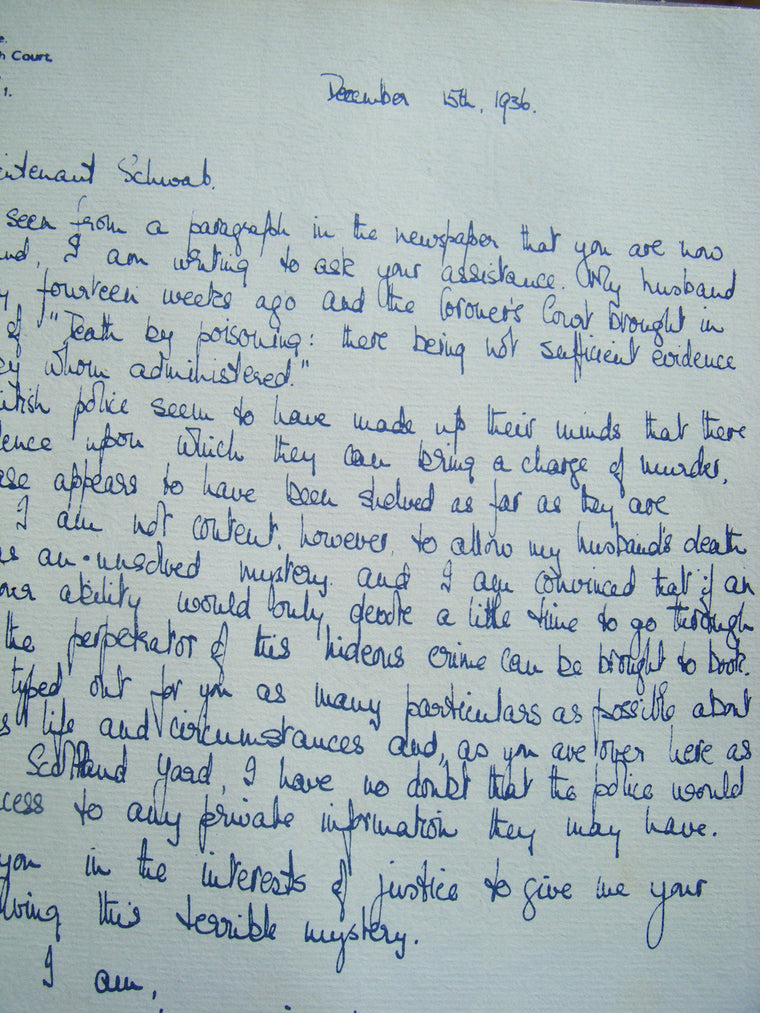 e.
h Court,
1.
December 15th, 1936.
eutenant Schwab.
seen from a paragraph in the newspaper that you are now
nd, I am writing to ask your assistance. My husband
y fourteen weeks ago and the Coroner's Court brought in
of "Death by poisoning: there being not sufficient evidence
by whom administered."
itish police seem to have made up their minds that there
dence upon which they can bring a charge of murder,
ase appears to have been shelved as far as they are
I am not content, however, to allow my husband's death
as an unsolved mystery and I am convinced that if an
our ability would only devote a little time to go through
the perpetrator of this hideous crime can be brought to book.
typed out for you as many particulars as possible about
s life and circumstances and, as you are over here as
Scotland Yard, I have no doubt that the police would
ccess to any private information they may have.
you in the interests of justice to give me your
lving this terrible mystery.
I am,